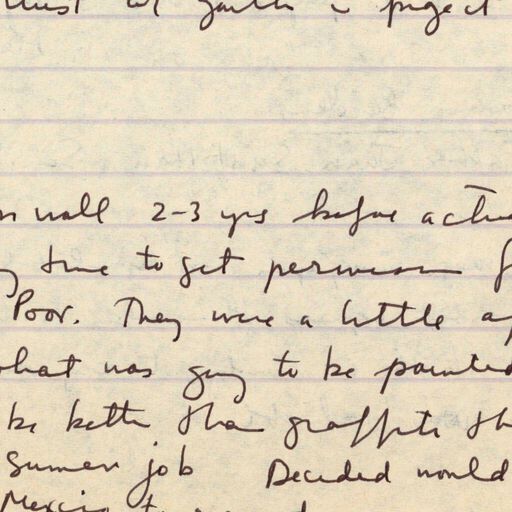 project
wall 2-3 yrs before
time to get permission
Poor. They were a little
what was going to be painted
be better than graffiti
summer job Decided would
Mexico to